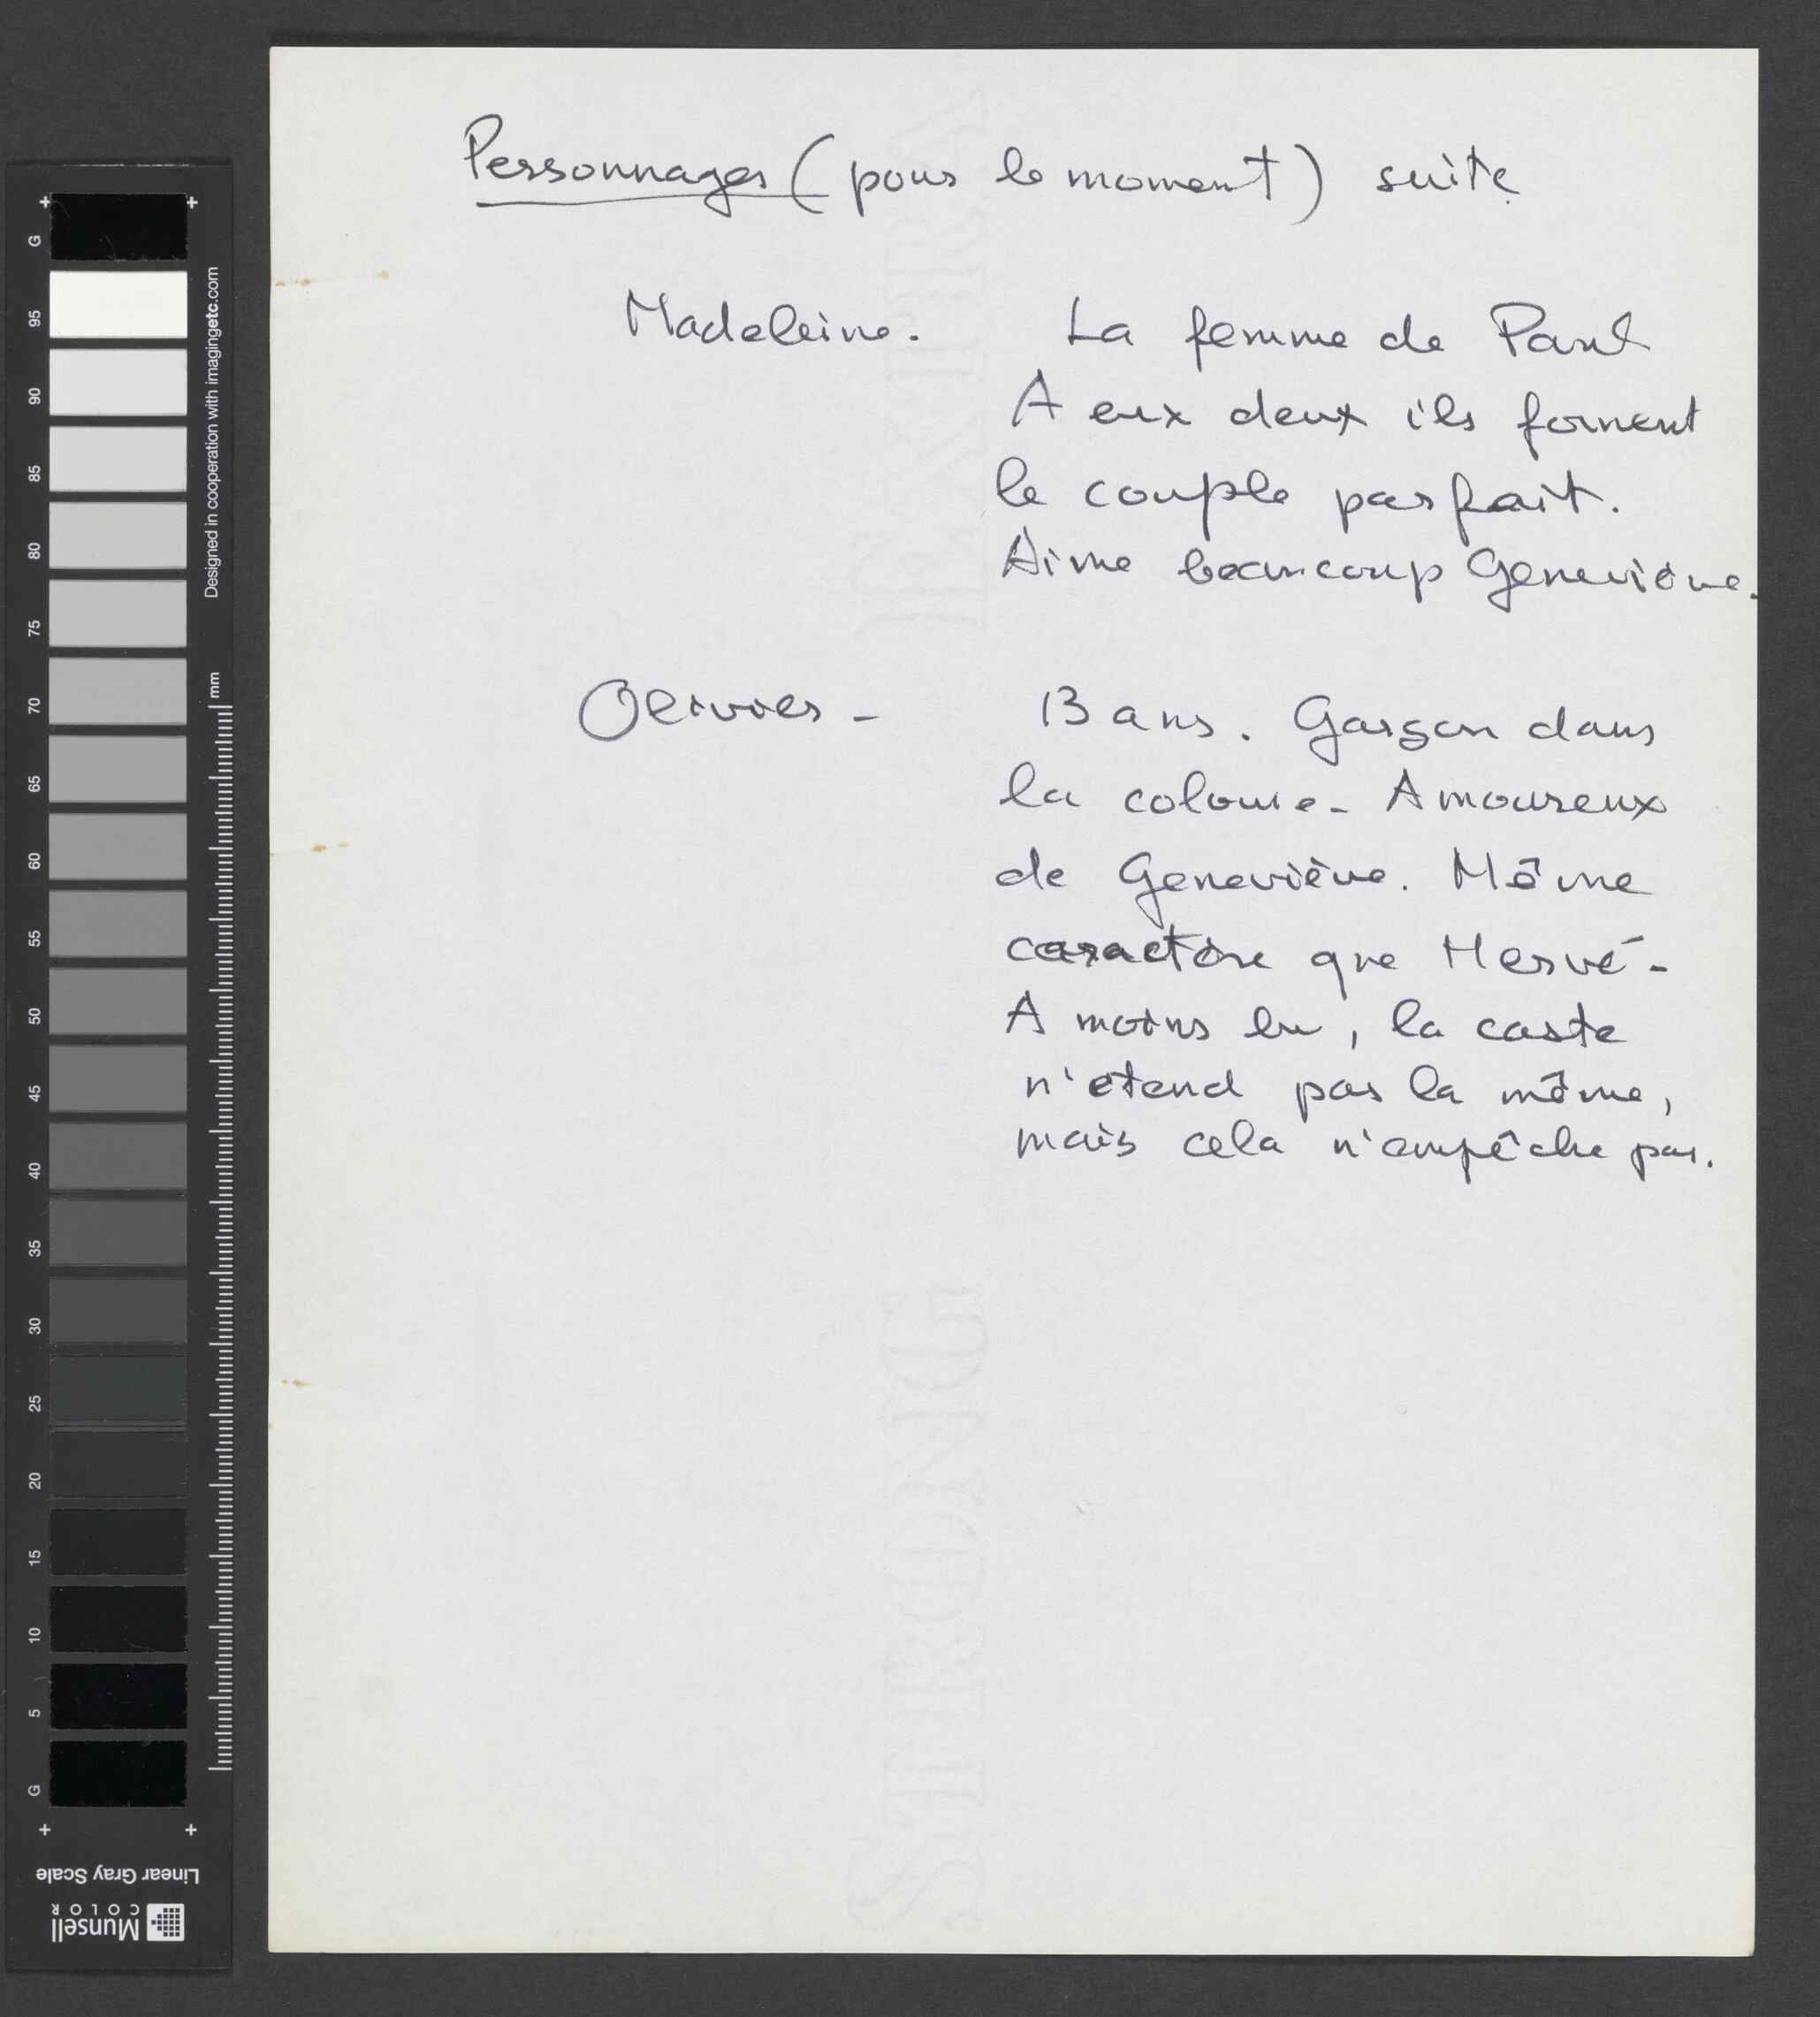 Personnages (pour le moment) suite
Madeleine. La femme de Paul
A eux deux ils forment
le couple parfait.
Aime beaucoup Geneviève.
Olivier - 13 ans. Garçon dans
la colonie - Amoureux
de Geneviève. Même
caractère que Hervé -
A moins lu, la caste
n'étend pas la même,
mais cela n'empêche pas.
G
95
90
85
80
75
70
65
60
55
50
45
40
35
30
25
20
15
10
5
G
Designed in cooperation with imagingetc.com
mm
Linear Gray Scale
Munsell
COLOR